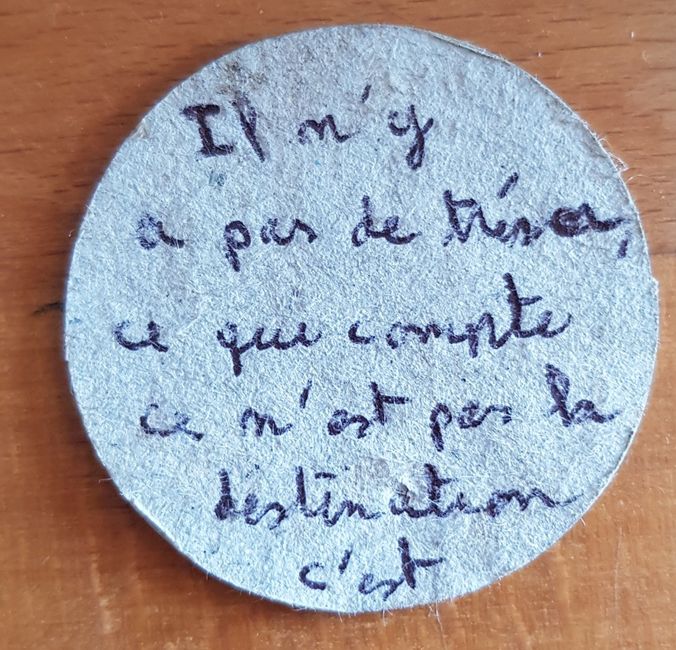 Il n'y
a pas de trésor,
ce qui compte
ce n'est pas la
destination
c'est